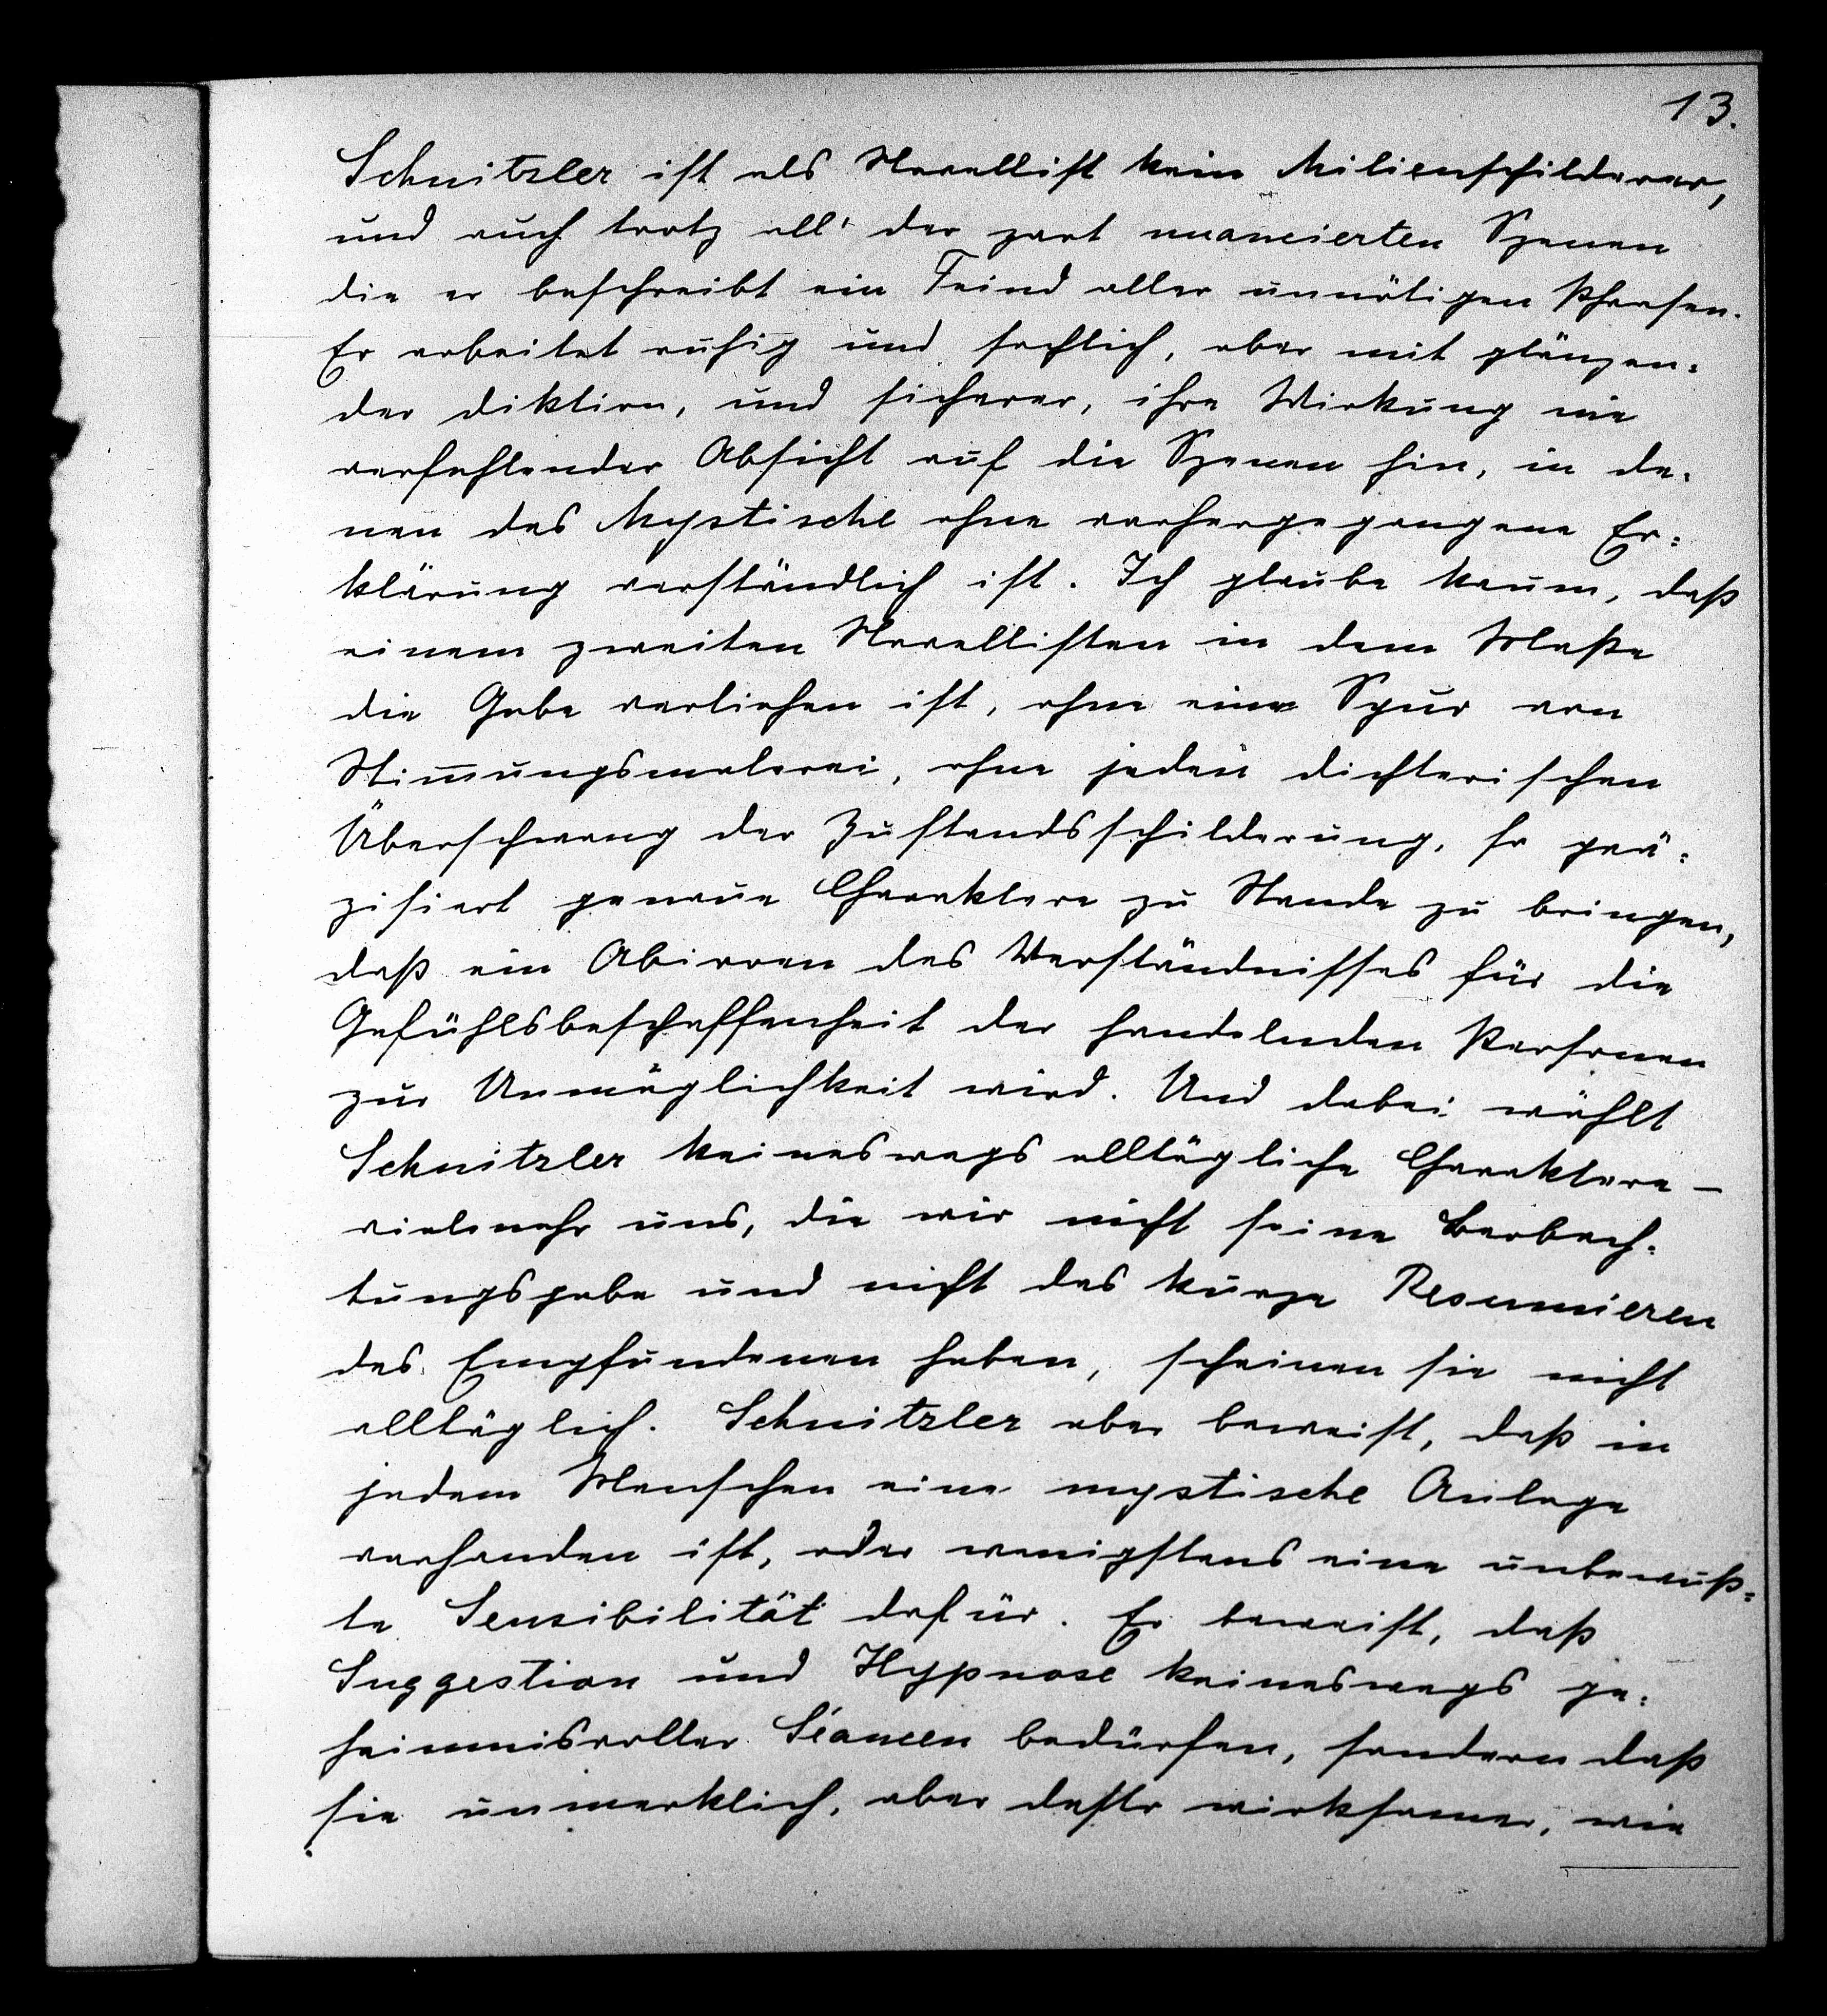 13.
Schnitzler ist als Novellist kein Milieuschilderer,
und auch trotz all' der zart nuancierten Szenen
die er beschreibt ein Feind aller unnötigen Phrasen.
Er arbeitet ruhig und sachlich, aber mit glänzen=
der Diktion, und sicherer, ihre Wirkung nie
verfehlender Absicht auf die Szenen hin, in de=
nen das Mystische ohne vorhergegangene Er=
klärung verständlich ist. Ich glaube kaum, daß
einem zweiten Novellisten in dem Maße
die Gabe verliehen ist, ohne eine Spur von
Stimmungsmalerei, ohne jeden dichterischen
Überschwang der Zustandsschilderung, so prä=
zisiert genaue Charaktere zu Stande zu bringen,
daß ein Abirren des Verständnisses für die
Gefühlsbeschaffenheit der handelnden Personen
zur Unmöglichkeit wird. Und dabei wählt
Schnitzler keineswegs alltägliche Charaktere –
vielmehr uns, die wir nicht seine Beobach=
tungsgabe und nicht das kurze Resumieren
des Empfundenen haben, scheinen sie nicht
alltäglich. Schnitzler aber beweist, daß in
jedem Menschen eine mystische Anlage
vorhanden ist, oder wenigstens eine unbewuß=
te Sensibilität dafür. Er beweist, daß
Suggestion und Hypnose keineswegs ge=
heimnisvoller Séancen bedürfen, sondern daß
sie unmerklich, aber desto wirksamer, wie